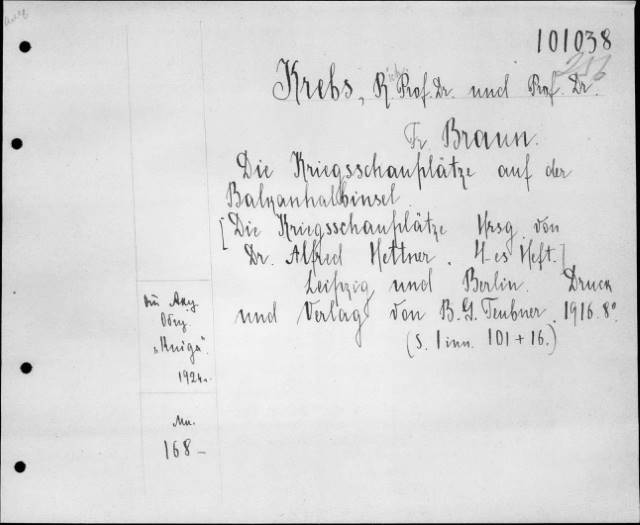 101038
Krebs, R. Prof. Dr. und Prof. Dr.
Fr. Braun.
Die Kriegsschauplätze auf der
Balkanhalbinsel
[Die Kriegsschauplätze Hrsg. von
Dr. Alfred Hettner. 4-es Heft.]
Leipzig und Berlin. Druck
und Verlag von B. G. Teubner. 1916. 8°.
(S. 1 inn. 101 + 16.)
"Книга".
1924 г.
168 –